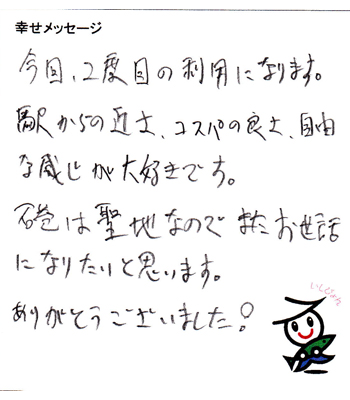 幸せメッセージ
今回、2度目の利用になります。
駅からの近さ、コスパの良さ、自由
な感じが大好きです。
石巻は聖地なのでまたお世話
になりたいと思います。
ありがとうございました!